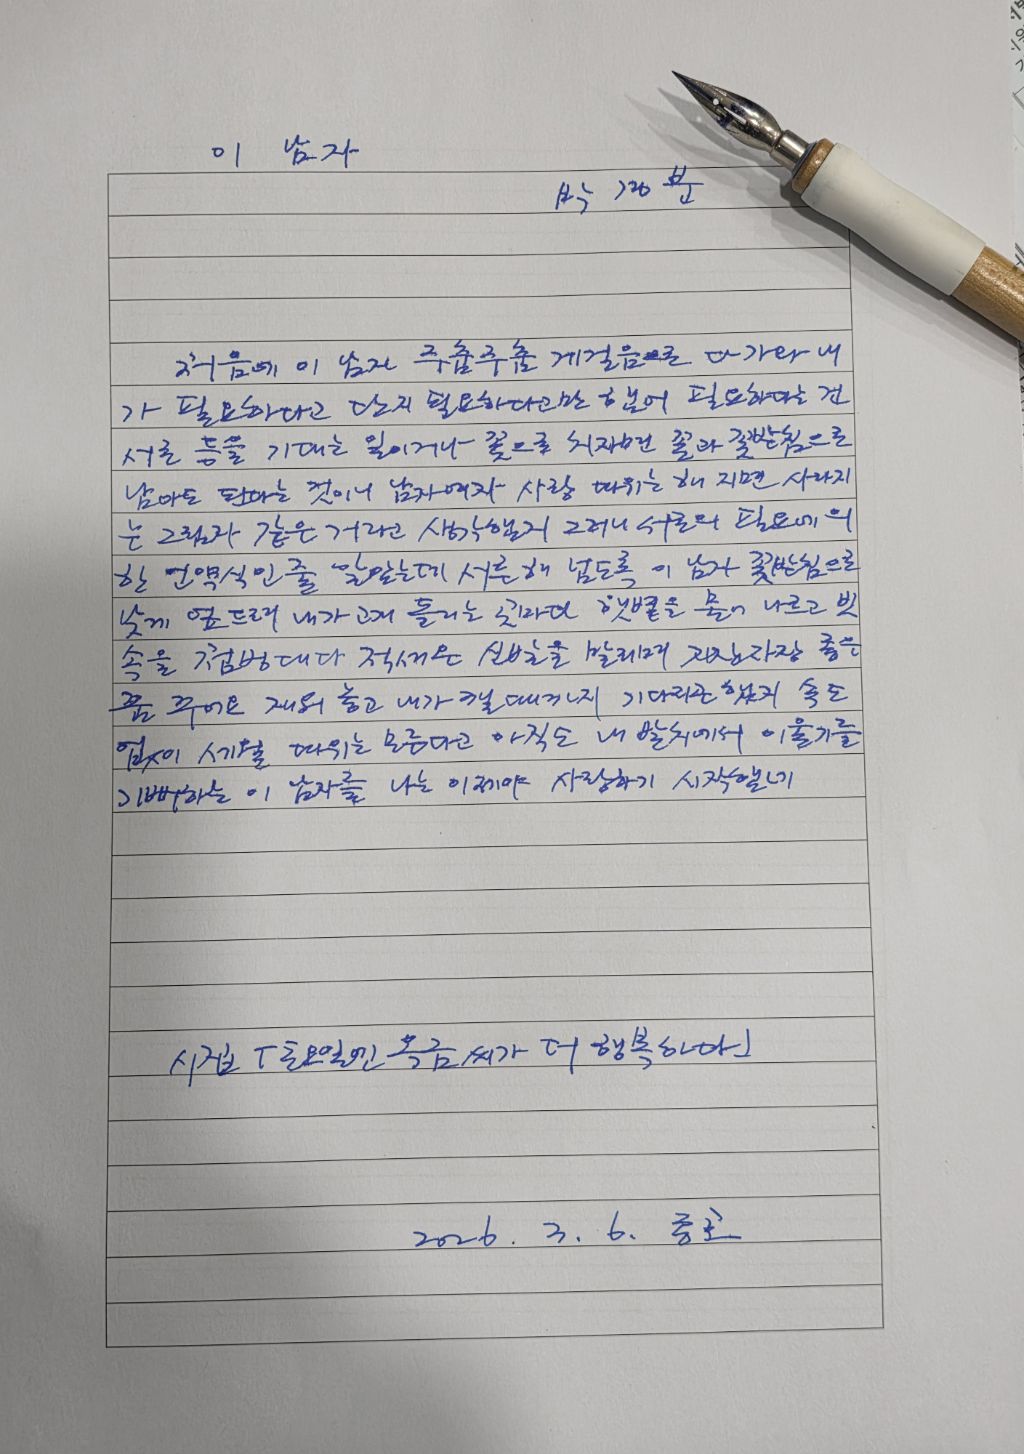 이 남자
박경분
처음에 이 남자 주춤주춤 게걸음으로 다가와 내
가 필요하다고 단지 필요하다고만 했어 필요하다는 건
서로 등을 기대는 일이거나 꽃으로 치자면 꽃과 꽃받침으로
남아도 된다는 것이니 남자여자 사랑 따위는 해 지면 사라지
는 그림자 같은 거라고 생각했지 그러니 서로의 필요에 의
한 면역식인 줄 알았는데 서른 해 넘도록 이 남자 꽃받침으로
낮게 엎드려 내가 고개 돌리는 곳마다 햇볕을 물어 나르고 빗
속을 첨벙대다 적셔온 신발을 말리며 가장 좋은
꿈 꾸어요 재워 놓고 내가 깰 때까지 기다리곤 했지 속도
없이 세월 따위는 모른다고 아직도 내 발치에서 이울기를
기뻐하는 이 남자를 나는 이제야 사랑하기 시작했네
시집 「토요일엔 옥금씨가 더 행복하다」
2026. 3. 6. 종호